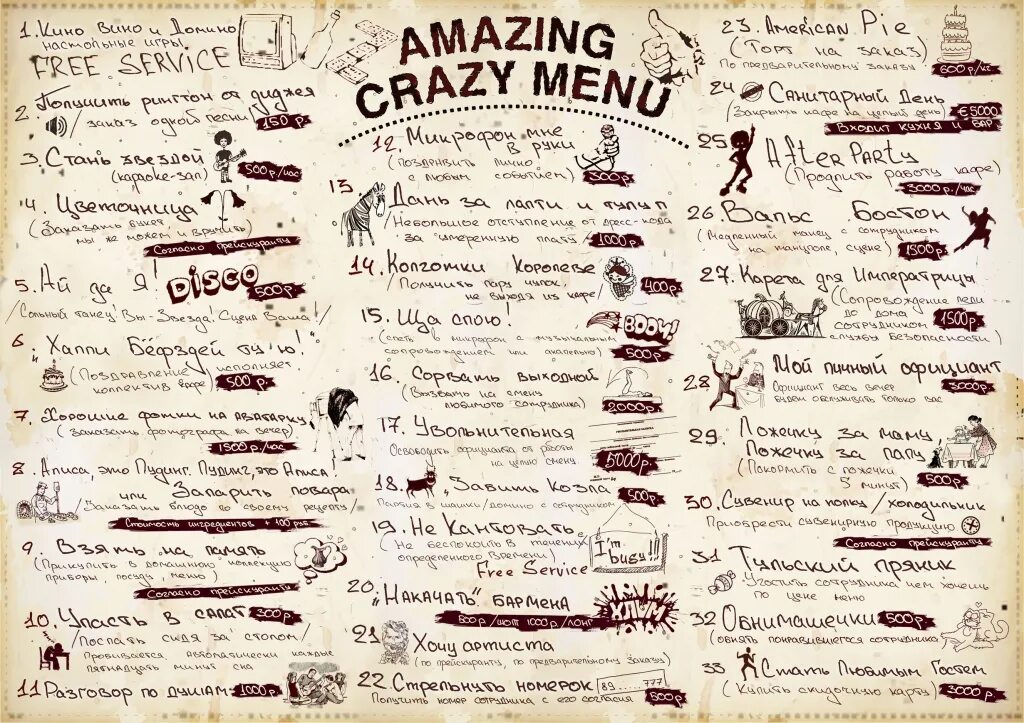 AMAZING
CRAZY MENU
1. Кино Вино и Домино
настольные игры
FREE SERVICE
2. Получить рингтон от диджея
/заказ одной песни/ 150 р.
3. Стань звездой
(караоке-зал) 500 р/час
4. Цветочница
(Заказать букет
мы же можем и вручить)
Согласно прейскуранту
5. Ай да Я! DISCO 500 р.
/Сольный танец! Вы-Звезда! Сцена Ваша!/
6. "Хаппи Бёфздей ту ю!
(Поздравление исполняет
коллектив кафе) 500 р.
7. Хорошие фотки на аватарку
(Заказать фотографа на вечер)
1500 р/час
8. Алиса, это Пудинг. Пудинг, это Алиса!
или Запарить повара
/Заказать блюдо по своему рецепту/
Стоимость ингредиентов + 100 руб
9. Взять на память
(Прикупить в домашнюю коллекцию
приборы, посуду, меню)
Согласно прейскуранту
10. Упасть в салат 300 р.
/Поспать сидя за столом/
Пробивается автоматически каждые
пятнадцать минут сна
11 Разговор по душам 1000 р.
12. Микрофон мне
в руки
(поздравить лично
с любым событием) 300 р.
13 Дань за лапти и тулуп
/Небольшое отступление от дресс-кода
за умеренную плату/ 1000 р.
14. Колготки Королеве
/Получить пару чулок,
не выходя из кафе/ 400 р.
15. Ща спою! BOOM!
(спеть в микрофон с музыкальным
сопровождением или акапельно) 500 р.
16. Сорвать выходной
(Вызвать на смену
любимого сотрудника) 2000 р.
17. Увольнительная
Освободить официанта от работы
на целую смену. 5000 р.
18. "Забить Козла 500 р.
Партия в шашки/домино с сотрудником
19. Не Кантовать
(Не беспокоить в течении
определенного времени)
Free Service
I'm
busy!!!
20. "Накачать" бармена
500 р/шот 1000 р/лонг
21 Хочу артиста
(по прейскуранту, по предварительному заказу)
22. Стрельнуть номерок 89.....777
Получить номер сотрудника с его согласия 500 р.
23. American Pie
(Торт на заказ)
По предварительному заказу 600 р/кг
24 Санитарный День
(Закрыть кафе на целый день €5000
Входит кухня и бар
25 After Party
(Продлить работу кафе)
3000 р./час
26. Вальс Бостон
(Медленный танец с сотрудником
на танцполе, сцене) 1500 р.
27. Карета для Императрицы
(Сопровождение леди
до дома
сотрудником
службы безопасности) 1500 р
28 Мой личный официант
Официант весь вечер 3000 р.
будет обслуживать только вас
29. Ложечку за маму,
Ложечку за папу
(Покормить с ложечки
5 минут) 500 р.
30. Сувенир на полку /холодильник
Приобрести сувенирную продукцию
Согласно прейскуранту
31 Тульский пряник
Угостить сотрудника чем хочешь
по цене меню
32 Обнимашечки 500 р.
(обнять понравившегося сотрудника
33 Стать Любимым Гостем
(Купить скидочную карту) 3000 р.